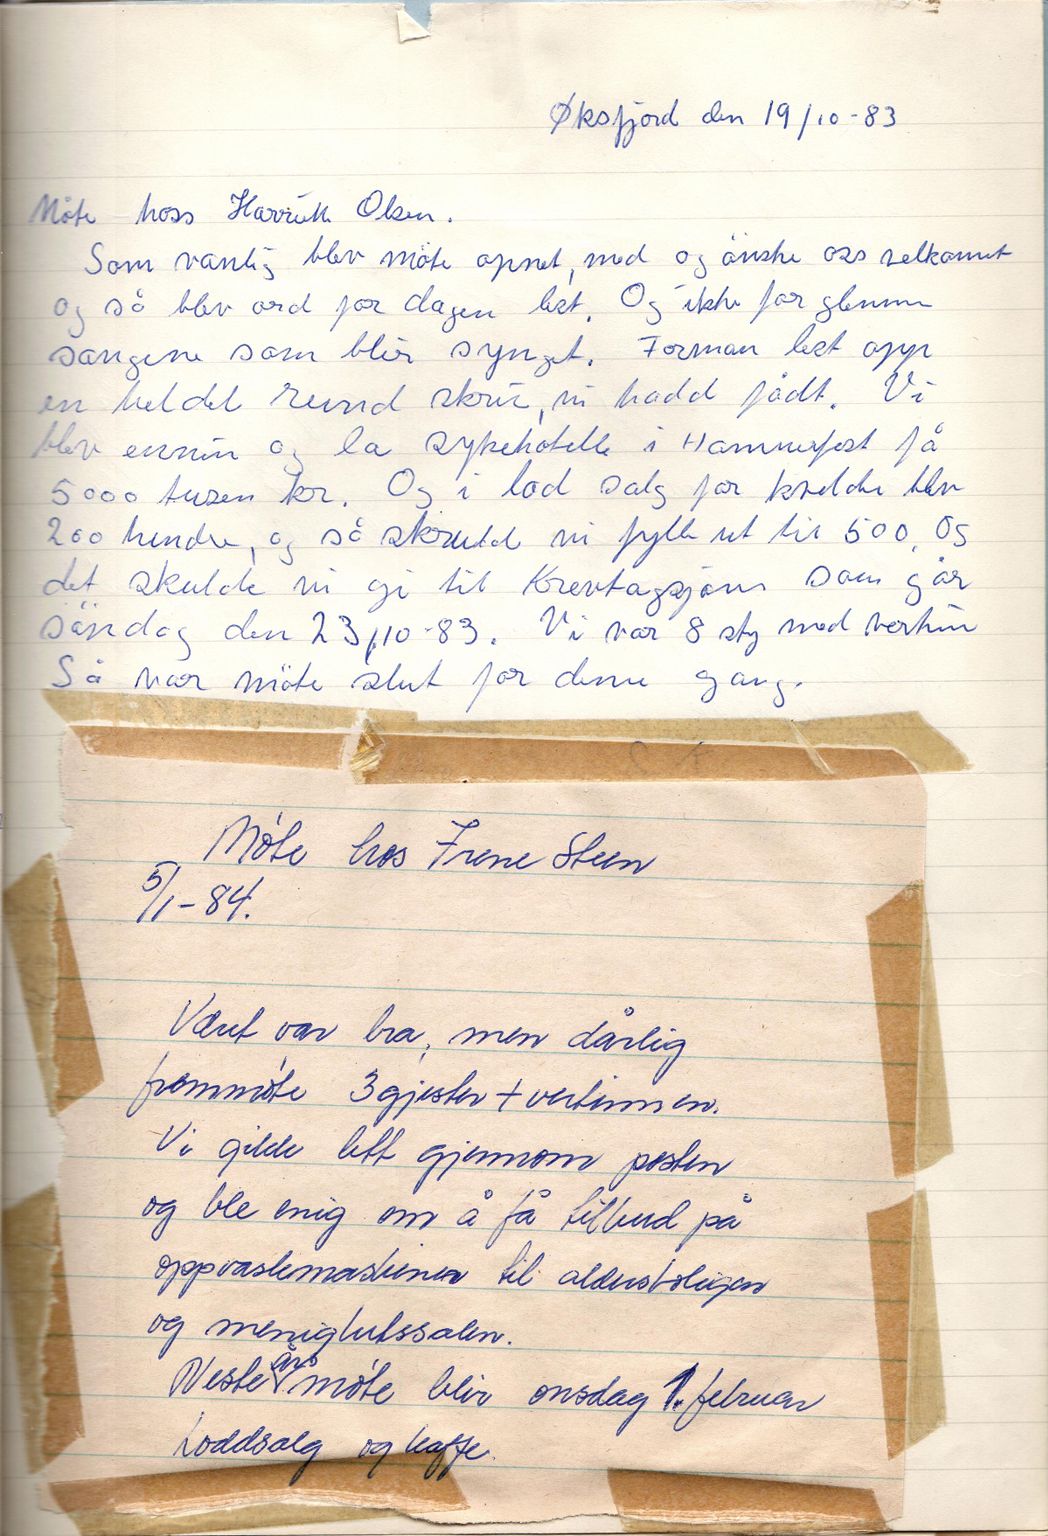 Øksfjord den 19/10-83
Möte hoss Harriett Olsen.
Som vanlig blev möte opnet, med og önske oss velkomet
og så blev ord for dagen lest. Og ikke for glemme
sangene som blir synget. Forman lest opp
en hel del rund skriv, vi hadd fådt. Vi
blev ennin og la sykehotelle i Hammerfest få
5000 tusen kr. Og i lod salg for kvelde blev
200 hundre, og så skulde vi fylle ut til 500. Og
det skulde vi gi til Kreftaksjon som går
söndag den 23/10-83. Vi var 8 stg med vertin
Så var möte slut for denne gang.
Møte hos Irene Steen
5/1-84.
Været var bra, men dårlig
frammøte 3 gjester + vertinnen.
Vi gikk lett gjennom posten
og ble enig om å få tilbud på
oppvaskmaskiner til aldersboligen
og menighetssalen.
Neste års møte blir onsdag 1. februar
Loddsalg og kaffe.